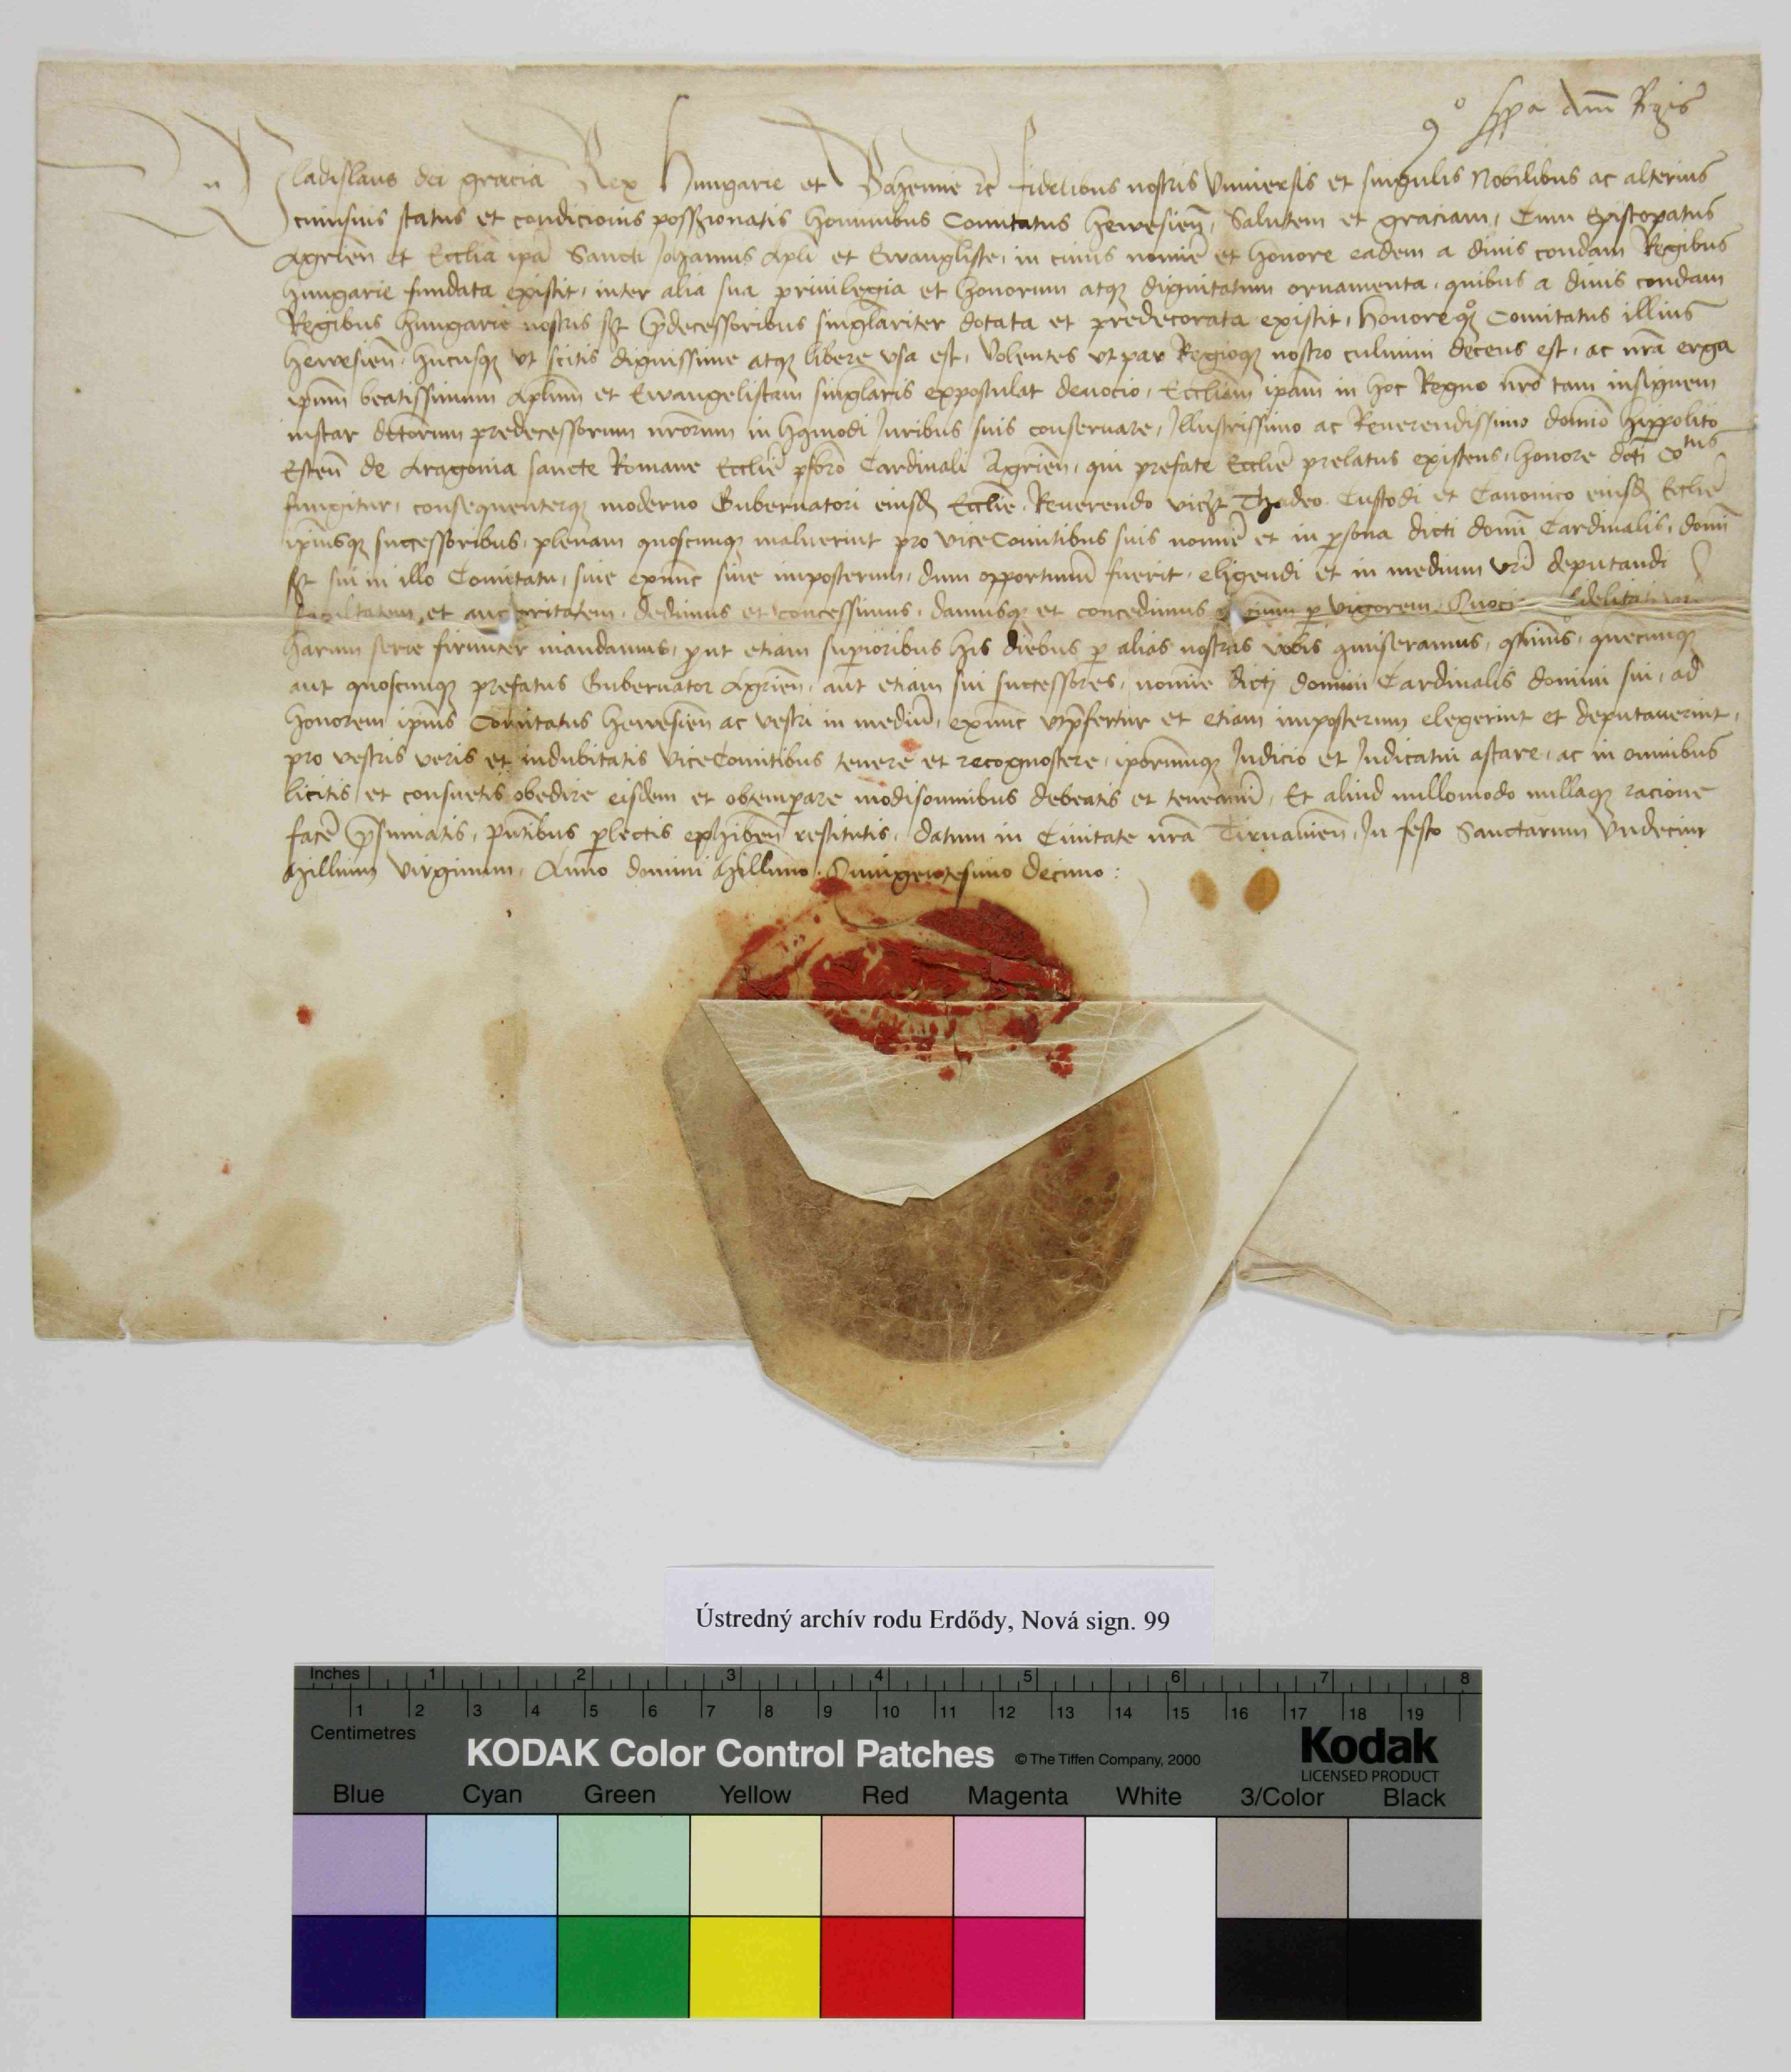 Co ppa dni Regis
Wladislaus dei gracia Rex Hungarie et Bohemie rc fidelibus nostris Vniuersis et singulis Nobilibus ac alterius
cuiusuis status et condicionis possessionatis hominibus Comitatus hewesien, Salutem et graciam, Cum Episcopatus
Agrien et Ecclia ipa Sancti Johannis Apli et Ewangliste, in cuius nomie et honore eadem a diuis condam Regibus
hungarie fundata existit, inter alia sua priuilegia et honorum atq dignitatum ornamenta, quibus a diuis condam
Regibus hungarie nostris scz predecessoribus singlariter dotata et predecorata existit, honore Comitatus illius
hewesien, hucusq vt scitis dignissime atq libere vsa est, Volentes vt par Regioq nostro culmini decens est, ac nra erga
ipum beatissimum Aplum et Ewangelistam singlaris expostulat deuocio, Eccliam ipam in hoc Regno nro tam insignem
instar detorum predecessorum nrorum in hmodi Juribus suis conseruare, Illustrissimo ac Reuerendissimo domio hippolito
Esten de Aragonia sancte Romane Ecclie psbro Cardinali Agrien, qui prefate Ecclie prelatus existens, honore deti Cotus
fungitur, consequenterq moderno Gubernatori eiusd Ecclie, Reuerendo viczt Thadeo Custodi et Canonico eiusd Ecclie
ipiusq successoribus, plenam quoscunq maluerint pro viceComitibus suis nomie et in psona dicti domi Cardinalis, domi
scz sui in illo Comitatu, siue exnunc siue imposterum, dum opportunu fuerit, eligendi et in medium vri deputandi
facultatem et auctoritatem, dedimus et concessimus, damusq et concedimus pntium p vigorem, Quoci fidelitati vre
harum serie firmiter mandamus, put etiam supioribus his diebus p alias nostras vobis comiseramus, qtinus, quecunq
aut quoscunq prefatus Gubernator Agrien, aut etiam sui successores, nomine dicti domini Cardinalis domini sui, ad
honorem ipius Comitatus hewesien ac vestri in mediu, exnunc vtpfertur et etiam imposterum elegerint et deputauerint,
pro vestris veris et indubitatis viceComitibus tenere et recognoscere, iporumq Judicio et Judicatui astare, ac in omnibus
licitis et consuetis obedire eisdem et obtempare modisomnibus debeatis et teneamini, Et aliud nullomodo nullaq racione
face psumatis, pntibus plectis exhiben restitutis, datum in Ciuitate nra Tirnauien, In festo Sanctarum Vndecim
Millium virginum, Anno domini Millimo Quingentesimo decimo :
Ústredný archív rodu Erdődy, Nová sign. 99
Inches 1 2 3 4 5 6 7 8
1 2 3 4 5 6 7 8 9 10 11 12 13 14 15 16 17 18 19
Centimetres
KODAK Color Control Patches © The Tiffen Company, 2000 Kodak
LICENSED PRODUCT
Blue Cyan Green Yellow Red Magenta White 3/Color Black